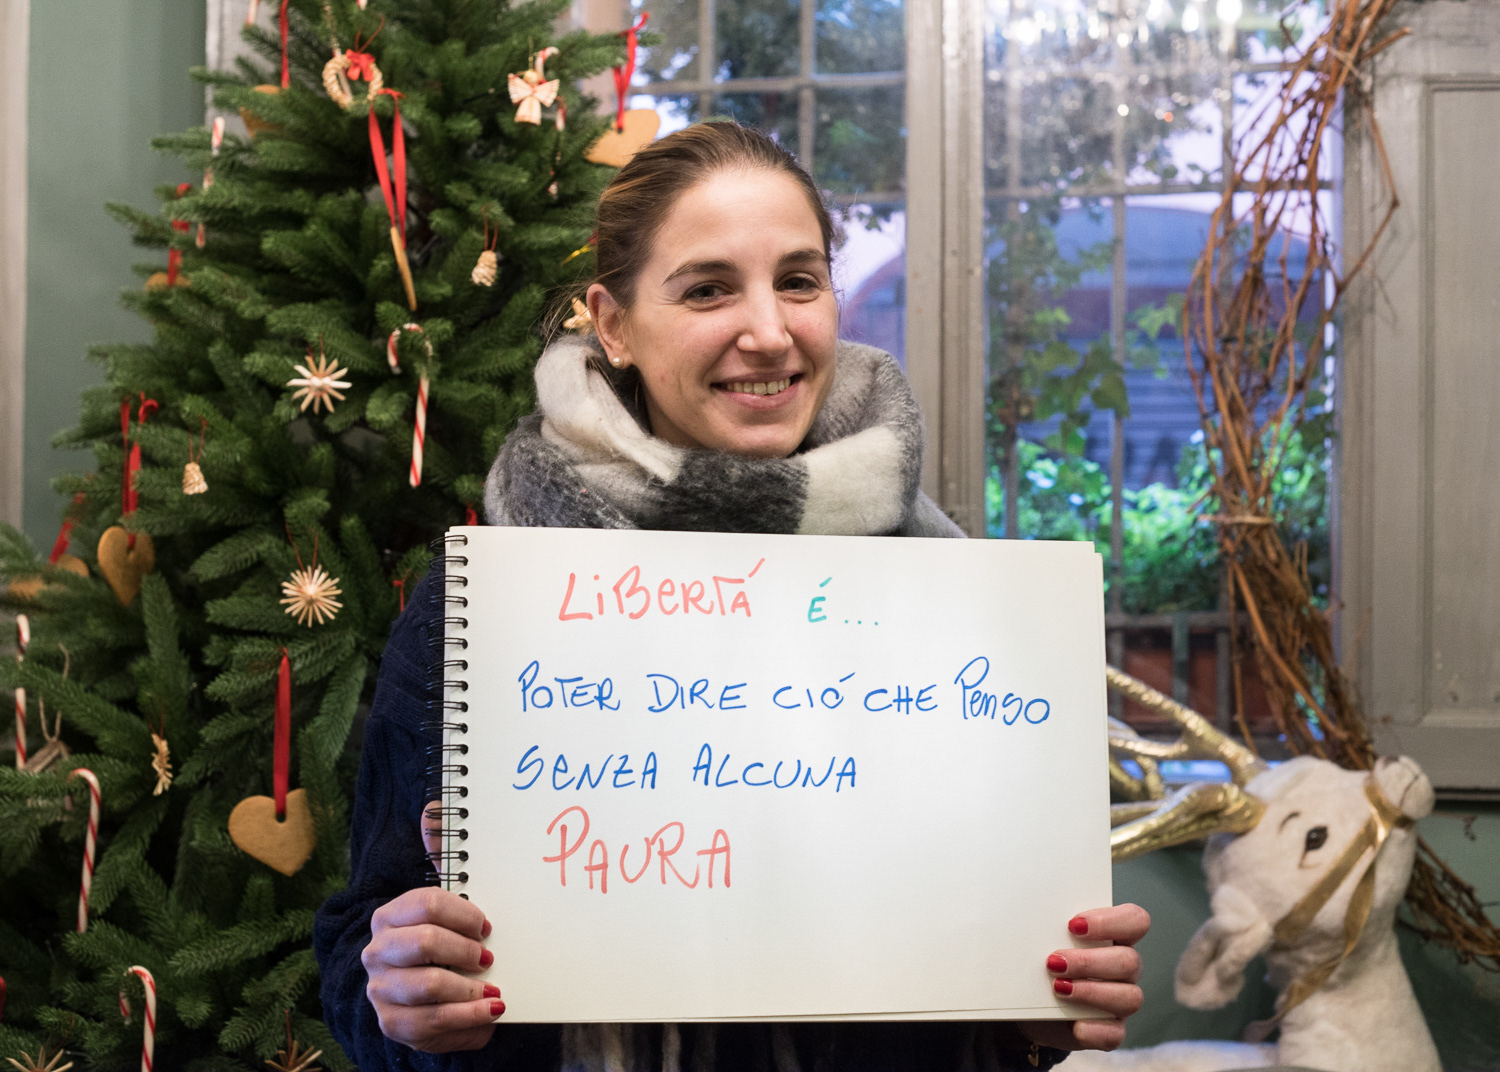 LiBERTÁ É...
POTER DIRE CIÓ CHE PENSO
SENZA ALCUNA
PAURA